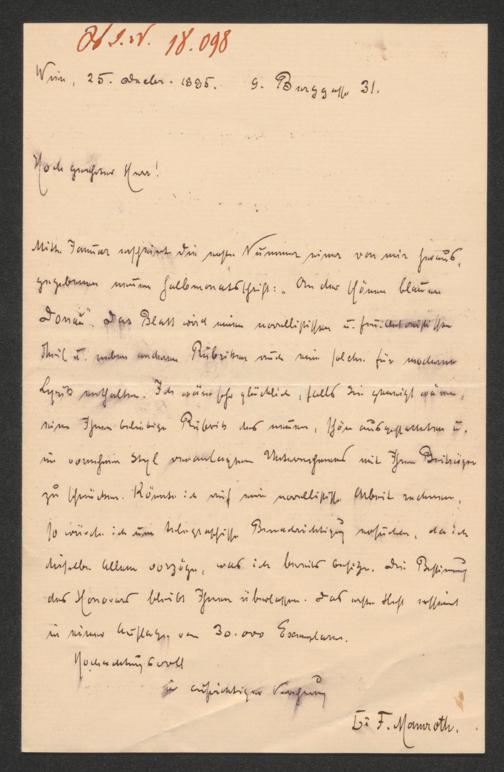 I. N. 18.098
Wien, 25. Decbr. 1885. 9. Berggasse 31.
Hochgeehrter Herr!
Mitte Januar erscheint die erste Nummer einer von mir heraus-
gegebenen neuen Halbmonatsschrift: „An der schönen blauen
Donau“. Das Blatt wird einen novellistischen u. feuilletonistischen
Theil u. neben anderen Rubriken auch eine solche für moderne
Lyrik enthalten. Ich wäre sehr glücklich, falls Sie geneigt wären,
eine Ihnen beliebige Rubrik des neuen, schön ausgestatteten u.
im vornehmen Styl veranlagten Unternehmens mit Ihren Beiträgen
zu schmücken. Könnte ich auf eine novellistische Arbeit rechnen,
so würde ich um telegraphische Benachrichtigung ersuchen, da ich
dieselbe Allem vorzöge, was ich bereits besitze. Die Bestimmung
des Honorars bleibt Ihnen überlassen. Das erste Heft erscheint
in einer Auflage von 30.000 Exemplaren.
Hochachtungsvoll
in aufrichtiger Verehrung
Dr F. Mamroth.